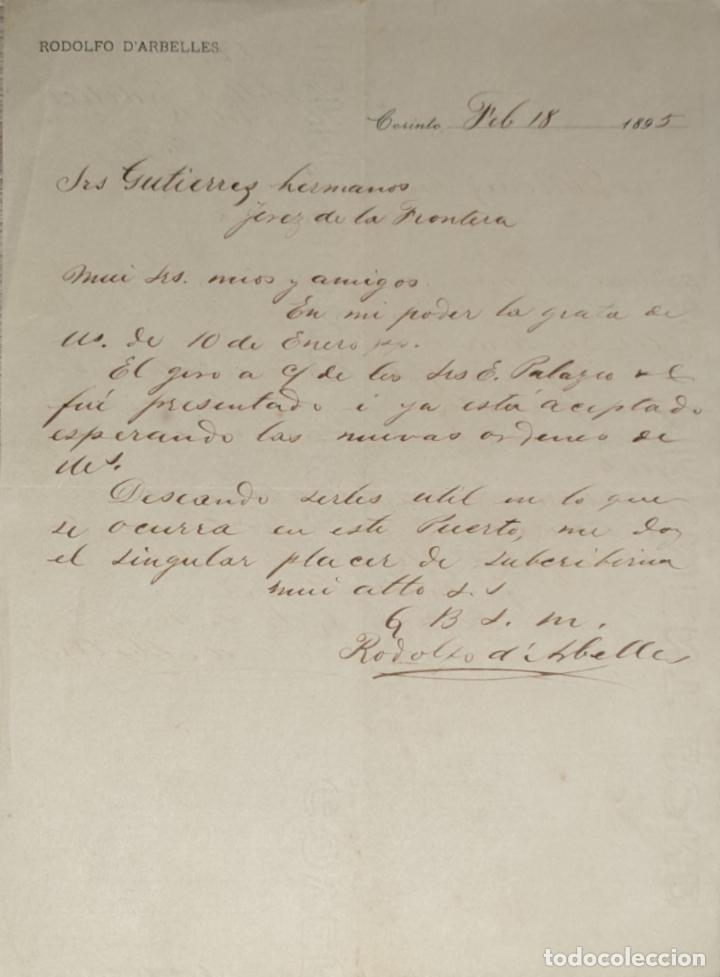 RODOLFO D'ARBELLES.
Corinto Feb 18 1895
Srs Gutierrez hermanos
Jerez de la Frontera
Mui Srs. mios y amigos
En mi poder la grata de
Us. de 10 de Enero pp.
El giro a c/ de los Srs E. Palazio & C
fué presentado i ya está aceptado
esperando las nuevas ordenes de
Us.
Deseando serles util en lo que
se ocurra en este Puerto, me doy
el singular placer de subcribirme
mui atto S. S
Q B S. M.
Rodolfo d'Arbelles
todocoleccion